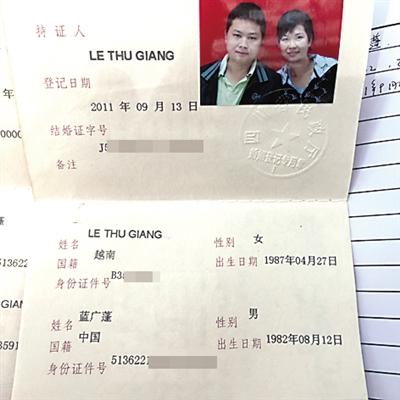 持证人
LE THU GIANG
登记日期
2011 年 09 月 13 日
结婚证字号
J5
备注
姓名 LE THU GIANG 性别 女
国籍 越南 出生日期 1987年04月27日
身份证件号 B3
姓名 蓝广蓬 性别 男
国籍 中国 出生日期 1982年08月12日
身份证件号 5136221
年
0000
蓬
513622
GIAN
3591